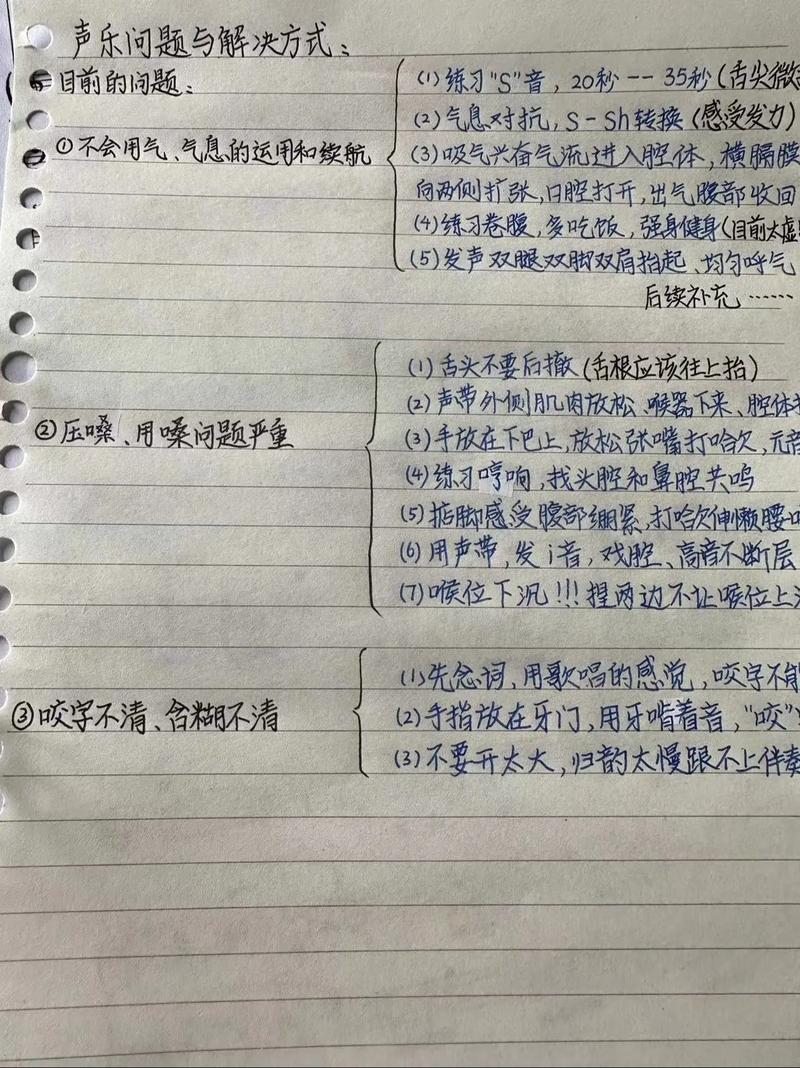 声乐问题与解决方式：
目前的问题：
①不会用气、气息的运用和续航
(1)练习"S"音，20秒--35秒(舌尖微
(2)气息对抗，S-Sh转换(感受发力)
(3)吸气兴奋气流进入腔体，横膈膜
向两侧扩张，口腔打开，出气腹部收回
(4)练习卷腹，多吃饭，强身健身(目前太虚
(5)发声双腿双脚双肩抬起、均匀呼气
后续补充……
②压嗓、用嗓问题严重
(1)舌头不要后撤(舌根应该往上抬)
(2)声带外侧肌肉放松、喉器下来、腔体
(3)手放在下巴上，放松张嘴打哈欠，元音
(4)练习哼响，找头腔和鼻腔共鸣
(5)掂脚感受腹部绷紧，打哈欠伸懒腰
(6)用声带，发i音，戏腔、高音不断层
(7)喉位下沉!!!捏两边不让喉位上
③咬字不清、含糊不清
(1)先念词、用歌唱的感觉，咬字不能
(2)手指放在牙门，用牙啃着音，"咬"
(3)不要开太大，归韵太慢跟不上伴奏